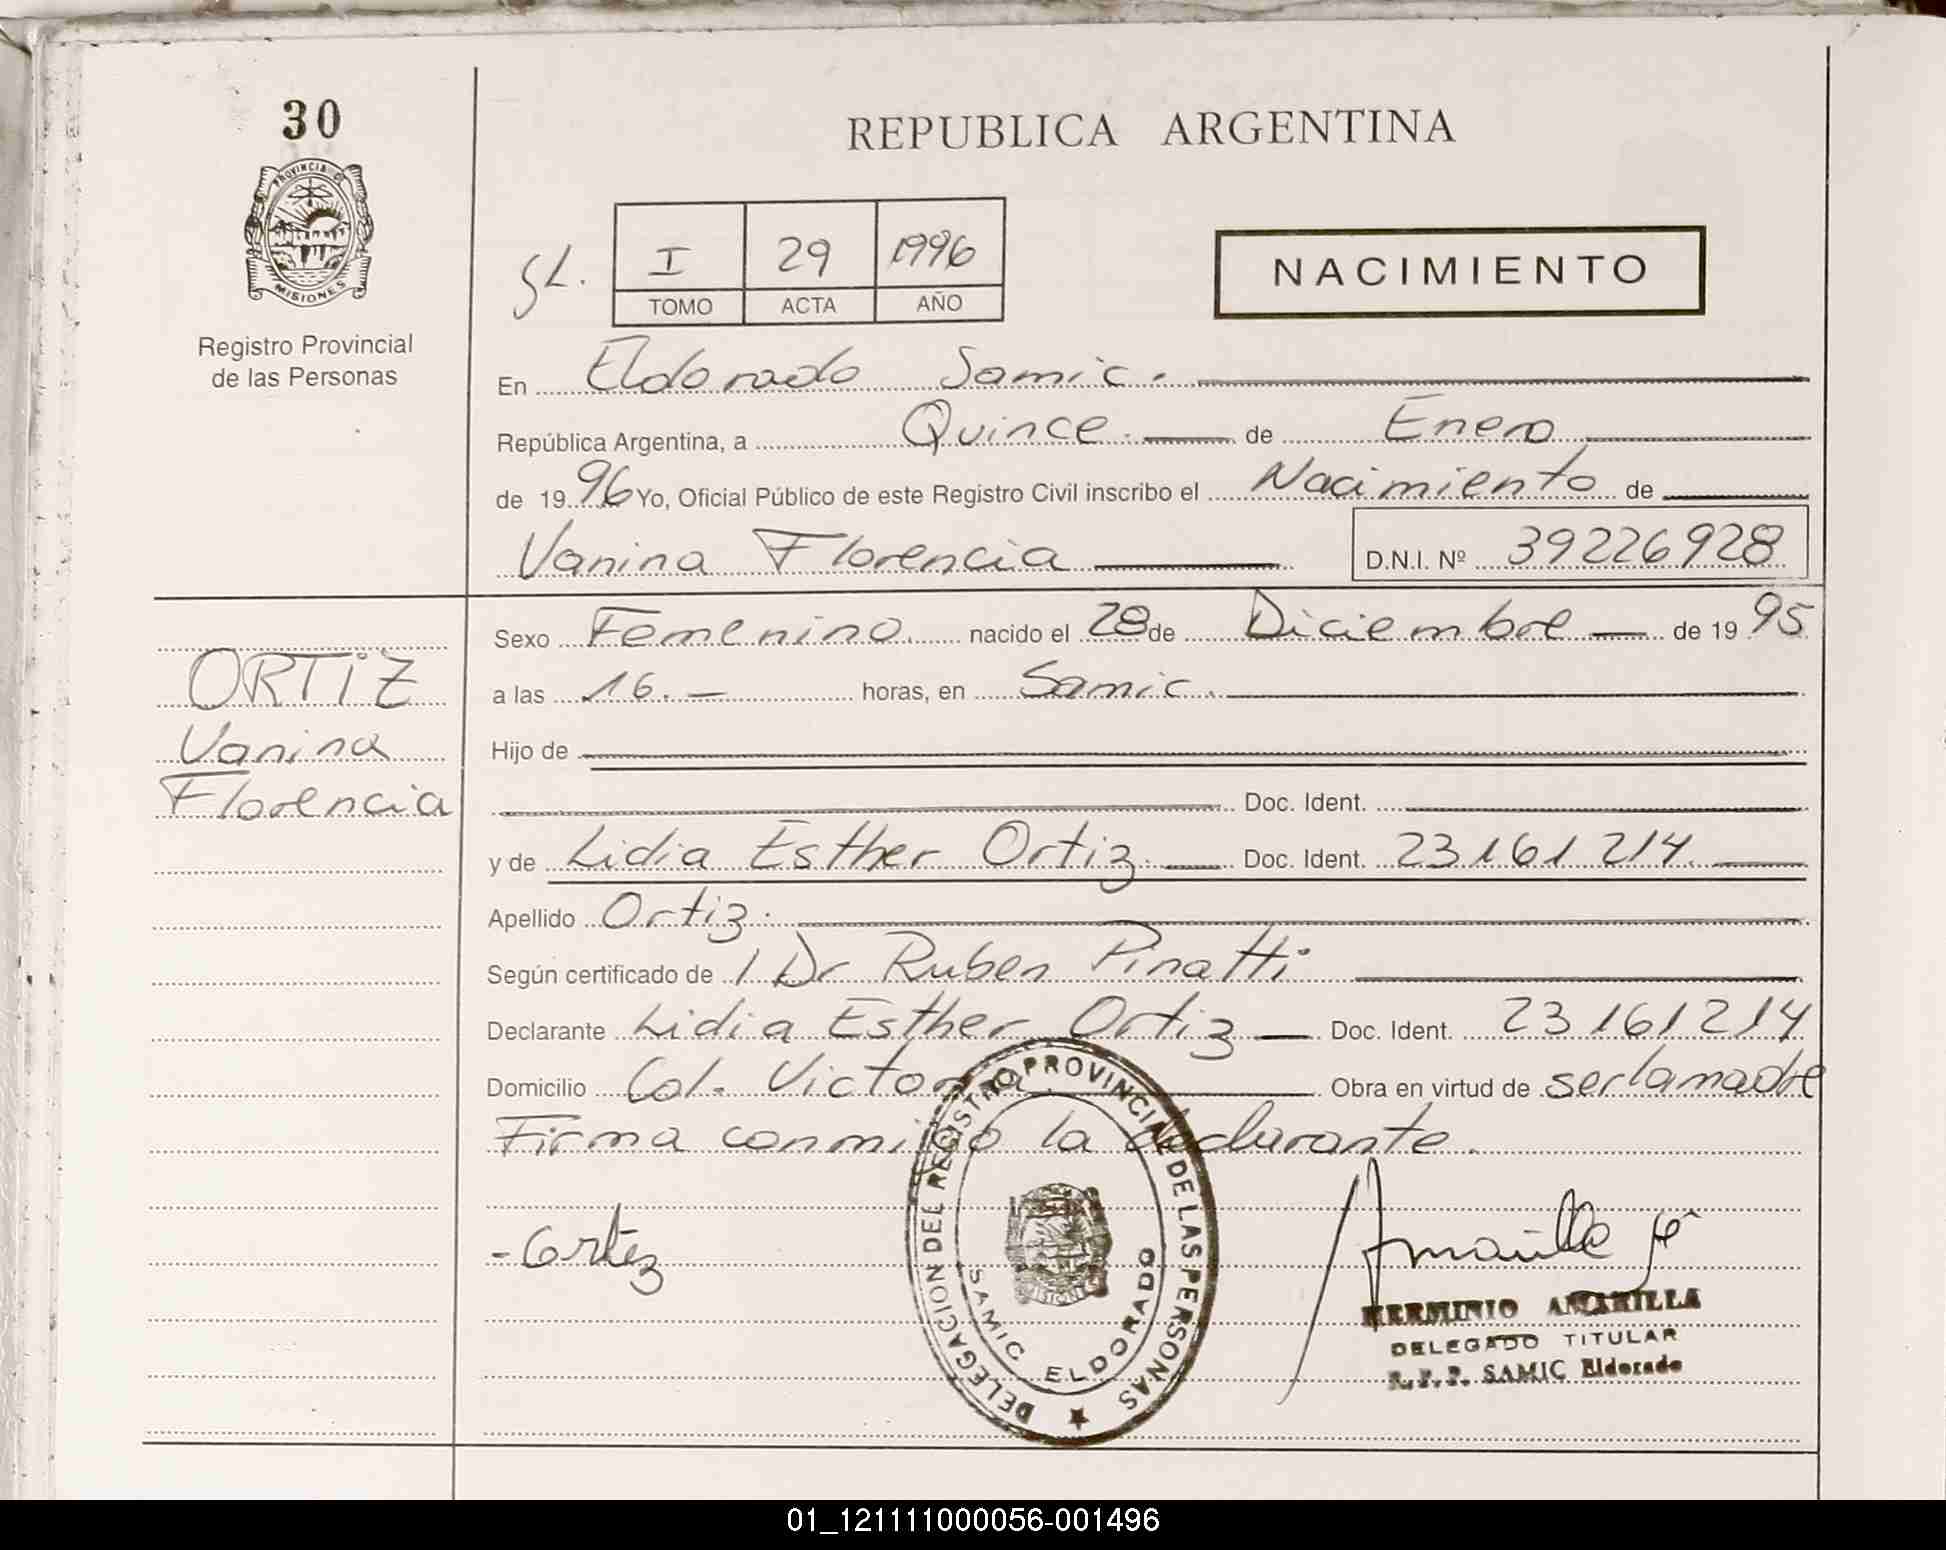 30
PROVINCIA DE
MISIONES
Registro Provincial
de las Personas
REPUBLICA ARGENTINA
SL.
I 29 1996
TOMO ACTA AÑO
NACIMIENTO
En Eldorado Samic.
República Argentina, a Quince. de Enero
de 1996 Yo, Oficial Público de este Registro Civil inscribo el Nacimiento de
Vanina Florencia D.N.I. Nº 39226928
Sexo Femenino. nacido el 28 de Diciembre de 19 95
a las 16. horas, en Samic.
Hijo de
Doc. Ident.
y de Lidia Esther Ortiz. Doc. Ident. 23161214.
Apellido Ortiz.
Según certificado de / Dr Ruben Pinatti
Declarante Lidia Esther Ortiz Doc. Ident. 23161214
Domicilio Col. Victoria. Obra en virtud de ser la madre
Firma conmigo la declarante.
ORTIZ
Vanina
Florencia
- Ortiz
DELEGACION DEL REGISTRO PROVINCIAL DE LAS PERSONAS
SAMIC ELDORADO
MISIONES
Amarilla H
HERMINIO AMARILLA
DELEGADO TITULAR
R. P. P. SAMIC Eldorado
01_121111000056-001496